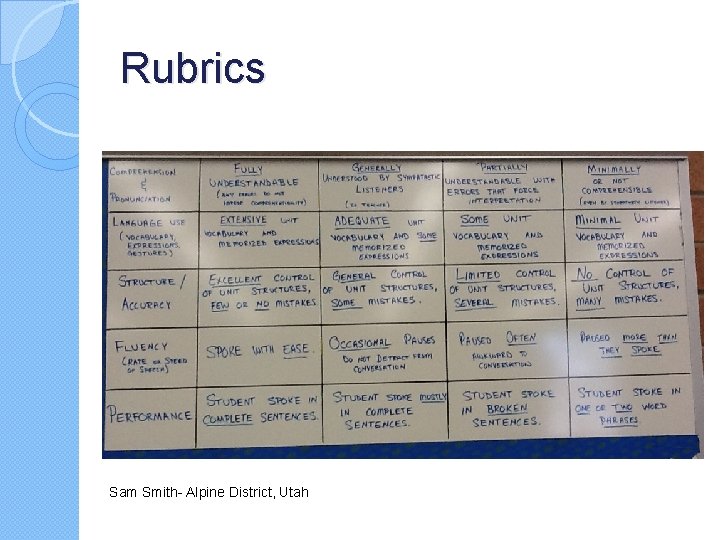 Rubrics
COMPREHENSION
&
PRONUNCIATION
FULLY
UNDERSTANDABLE
(ANY ERRORS DO NOT
IMPEDE COMPREHENSIBILITY)
GENERALLY
UNDERSTOOD BY SYMPATHETIC
LISTENERS
PARTIALLY
UNDERSTANDABLE WITH
ERRORS THAT FORCE
INTERPRETATION
MINIMALLY
OR NOT
COMPREHENSIBLE
(EVEN BY SYMPATHETIC LISTENERS)
LANGUAGE USE
(VOCABULARY,
EXPRESSIONS,
GESTURES)
EXTENSIVE UNIT
VOCABULARY AND
MEMORIZED EXPRESSIONS
ADEQUATE UNIT
VOCABULARY AND SOME
MEMORIZED
EXPRESSIONS
SOME UNIT
VOCABULARY AND
MEMORIZED
EXPRESSIONS
MINIMAL UNIT
VOCABULARY AND
MEMORIZED
EXPRESSIONS
STRUCTURE /
ACCURACY
EXCELLENT CONTROL
OF UNIT STRUCTURES,
FEW OR NO MISTAKES.
GENERAL CONTROL
OF UNIT STRUCTURES,
SOME MISTAKES.
LIMITED CONTROL
OF UNIT STRUCTURES,
SEVERAL MISTAKES.
NO CONTROL OF
UNIT STRUCTURES,
MANY MISTAKES.
FLUENCY
(RATE OR SPEED
OF SPEECH)
SPOKE WITH EASE.
OCCASIONAL PAUSES
DO NOT DETRACT FROM
CONVERSATION
PAUSED OFTEN
AWKWARD TO
CONVERSATION
PAUSED MORE THAN
THEY SPOKE
PERFORMANCE
STUDENT SPOKE IN
COMPLETE SENTENCES.
STUDENT SPOKE MOSTLY
IN COMPLETE
SENTENCES.
STUDENT SPOKE
IN BROKEN
SENTENCES.
STUDENT SPOKE IN
ONE OR TWO WORD
PHRASES.
Sam Smith- Alpine District, Utah